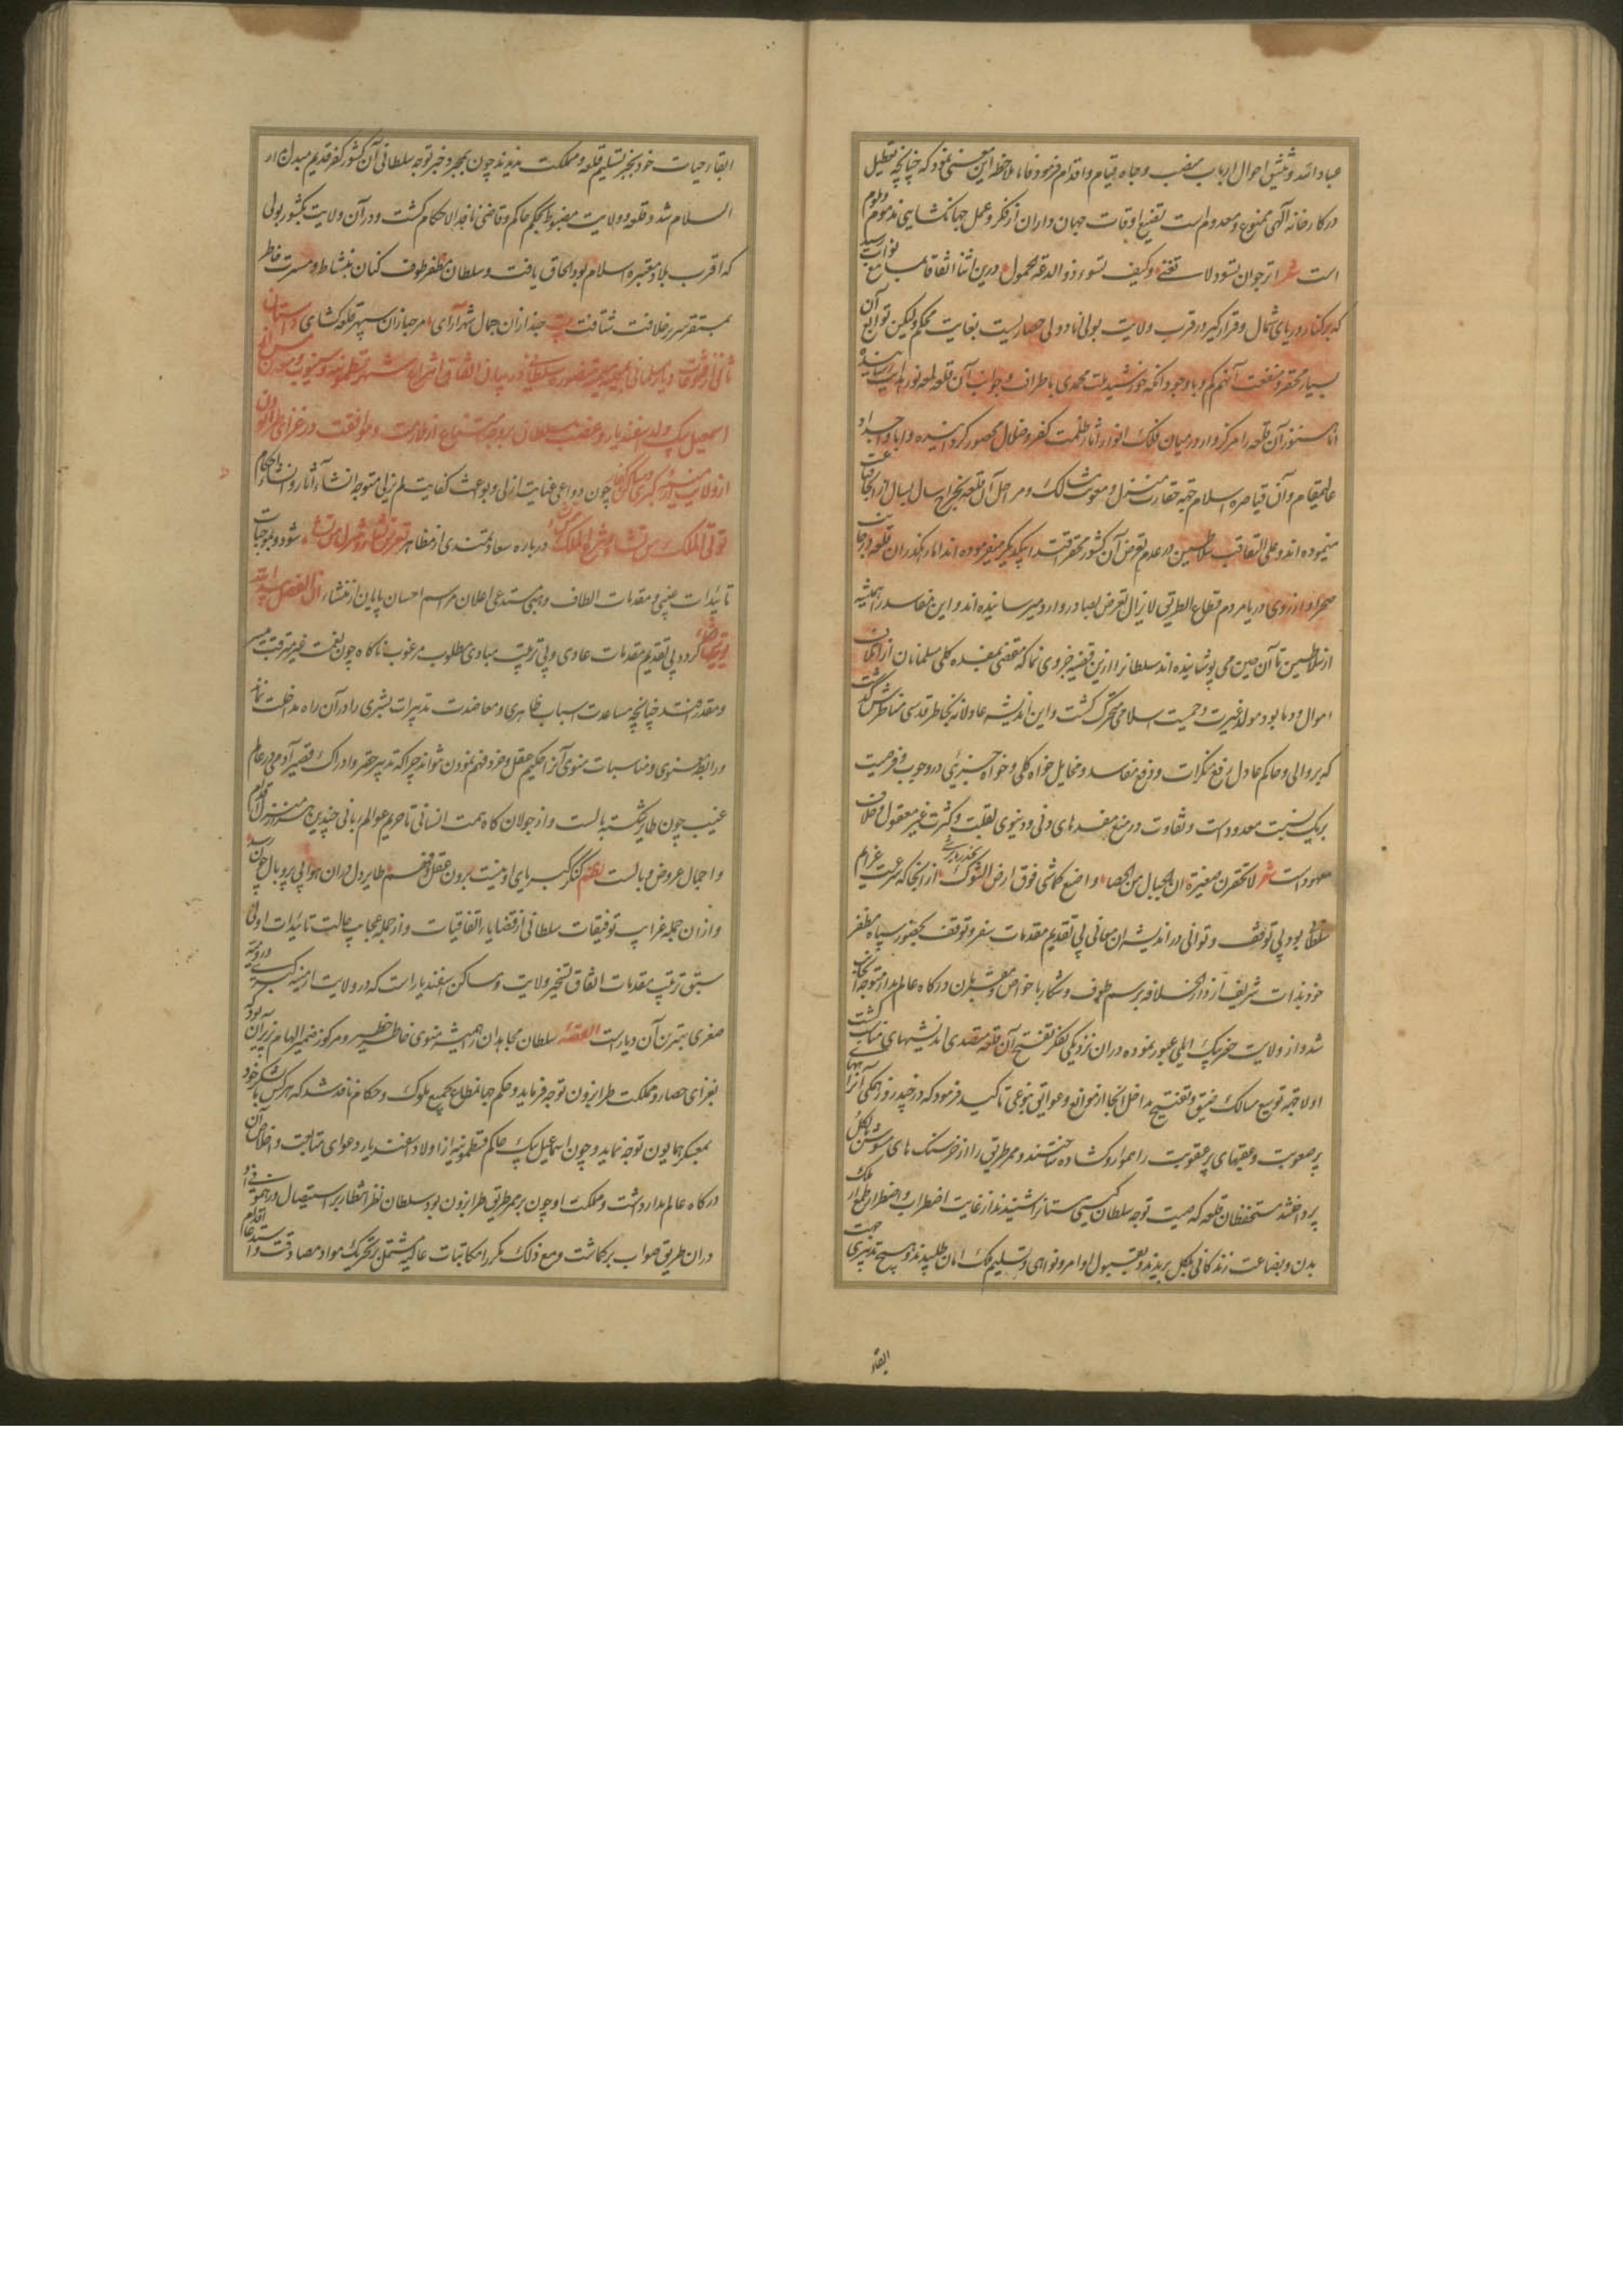 عباد الله و تفتیش احوال ارباب منصب و جاه قیام و اقدام فرمود فاما ملاحظه این معنی نمود که چنانچه تعطیل
در کارخانه آلهی ممنوع و معدوم است تضییع اوقات جهان داران از فکر و عمل جهانکشایی مذموم و ملوم
است شعر اترجوان تسود ولا تعنی وکیف تسود ذو الدعة البخول درین اثنا اتفاقا بمسامع نواب رسید
که بر کنار دریای شمال و قرار کیر در قرب ولایت بولی انادولی حصاریست بغایت محکم ولیکن توابع آن
بسیار محقر و منفعت آنهم کم و با وجود آنکه خورشید ملت محمدی باطراف و جوانب آن قلعه لمعه نور هدایت رسانیده
اما هنوز آن قلعه را مرکزوار در میان فلک انوار آثار ظلمت کفر و ضلال محصور کردانیده و ابا و اجداد
عالیمقام و آن قیاصره اسلام جهة حقارت منزل و صعوبت مسالک و مراحل آن قلعه بخراج سال بسال از آنجا قناعت
مینموده اند و علی التعاقب سلاطین در عدم تعرض آن کشور محقر اقتدا بیکدیگر میفرموده اند اما از کذران قلعه در جانب
صحرا و از روی دریا مردم قطاع الطریق لا یزال تعرض بصادر و وارد میرسانیده اند و این مفاسد را همیشه
از سلاطین تا آن حین می پوشانیده اند سلطانرا ازین قضیه جزوی نما که مفضی بمفسده کلی مسلمانان از اتلاف
اموال و دما بود مولد غیرت و حمیت اسلامی متحرک کشت و این اندیشه عادلانه بخاطر قدسی مناظرش کذشت
که بر والی و حاکم عادل رفع منکرات و دفع مفاسد و مخایل خواه کلی و خواه جزئی در وجوب و فرضیت
بریک نسبت معدود است و تفاوت در منع مفسدهای دنی و دنیوی بقلت و کثرت غیر معقول و خلاف
معهود است شعر لا تحقرن صغیرة ان الجبال من الحصا واضع کماش فوق ارض الشوک یحذر ما یری از آنجا که سرعت عزایم
سلطانی بود بی توقف و توانی در اندیشه ان مبانی بی تقدیم مقدمات سفر و توقف بحضور سپاه مظفر
خود بذات شریف از دار الخلافه برسم طوف و شکار با خواص و مقربان درکاه عالم مدار متوجه آنجانب
شد و از ولایت خضربیک ایلی عبور نموده در ان نزدیکی بفکر تفتیح آن قلعه متصدی اندیشهای مناسب کشت
اولا جهة توسیع مسالک ضیق و تفتیح مداخل انجا از موانع و عوایق بنوعی تاکید فرمود که در چند روز همکی آنراههای
پر صعوبت و عقبهای پر عقوبت را هموار و کشاده ساختند و ممر طریق را از خرسنک های مشوش بالکل
پرداختند مستحفظان قلعه که صیت توجه سلطان کیتی ستانرا شنیدند از غایت اضطراب و اضطرار طمع از ملک
بدن و بضاعت زندکانی بالکل بریدند و بقبول اوامر و نواهی و تسلیم ملک امان طلبیدند و هیچ تدبیری جهت
ابقاء
ابقاء حیات خود بجز تسلیم قلعه و مملکت ندیدند چون بمجرد خبر توجه سلطانی آن کشور کفر قدیم مبدل بدار
السلام شد و قلعه و ولایت مضبوط بحکم حاکم و قاضی نافذ الاحکام کشت و در آن ولایت بکشور بولی
که اقرب بلاد معتبره اسلام بود الحاق یافت و سلطان مظفر طوف کنان بنشاط و مسرت خاطر
بمستقر سریر خلافت شتافت بیت حبذا زان جمال شهر آرای مرحبا زان سپهر قلعه کشای داستان
ثانی از فتوحات
اسمعیل بیک ولد اسفندیار و غضب سلطان بر وجه امتناع از ملازمت و موافقت در غزای طرابزون
از ولایت ارمنیه کبری و مساکن کفار چون دواعی عنایت ازلی و بواعث کفایت لم یزلی متوجه انشاء آثار و انشاء احکام
تؤتی الملک من تشاء و تنزع الملک ممن تشاء در باره سعادتمندی از مظاهر تعز من تشاء و تذل من تشاء شود و موجبات
تائیدات غیبی و مقدمات الطاف وهبی مستدعی اعلان مراسم احسان بی پایان از منشاء ان الفضل بید الله
یؤتیه من یشاء کردد بی تقدیم مقدمات عادی و بی ترتیب مبادی مطلوب مرغوب ناکاه چون نعمت غیر مترقب میسر
و مقدر افتد چنانچه مساعدت اسباب ظاهری و معاضدت تدبیرات بشری را در آن راه مداخلت نماند
و رابطه صوری و مناسبات معنوی آنرا حکیم عقل و خرد فهم نمودن نتواند چرا که تدبیر حقیر و ادراک قصیر آدمی در عالم
غیب چون طایر شکسته بالست و از جولانکاه همت انسانی تا حریم عوالم ربانی چندین هزار منزل اقدام
و احجال عروض و بالست نظم کنکر کبریای او هست برون ز عقل و فهم طایر دل در ان هوا بی پر و بال چون رسد
و از ان جمله غرایب توفیقات سلطانی از قضایا اتفاقیات و از جمله عجایب حالت تائیدات اولی
سبق ترتیب مقدمات اتفاق تسخیر ولایت و مساکن اسفندیار است که در ولایت ارمنیه کبری و رومیه
صغری بهترین آن دیار است القصه سلطان مجاهدان را همیشه منوی خاطر خطیر و مرکوز ضمیر الهام پذیر آن بود که
بغزای حصار و مملکت طرابزون توجه فرماید و حکم جهانمطاع بجمیع ملوک و حکام نافذ شد که هر کس با لشکر خود
بمعسکر همایون توجه نماید و چون اسماعیل بیک حاکم قسطمونیه از اولاد اسفندیار دعوای متابعت و اخلاص آن
درکاه عالم مدار داشت و مملکت او چون بر ممر طریق طرابزون بود سلطان نظر انتظار بر استقبال در همو
در ان طریق صواب برکماشت و مع ذلک مکررا مکاتبات عالیه مشتمل بر تحریک مواد مصادقت و استدعا اقدام